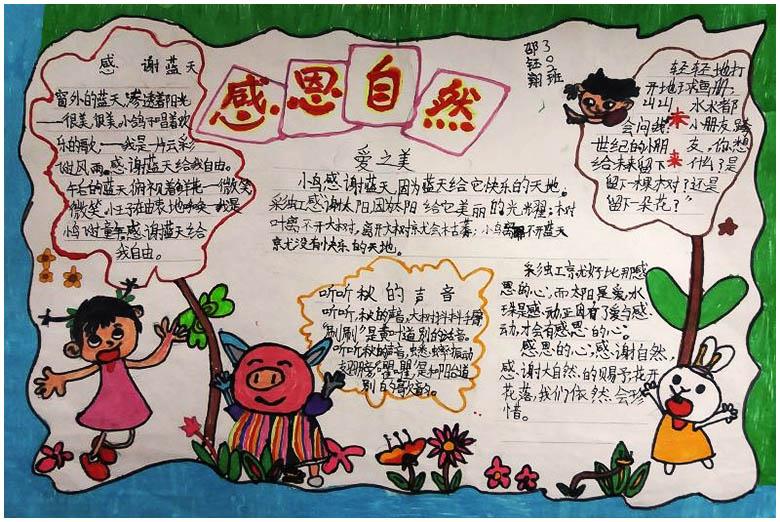 感恩自然
302班
邵钰翔
感谢蓝天
窗外的蓝天,渗透着阳光
一很美,很美,小鸽子唱着欢
乐的歌,一我是一片云彩
似风雨。感谢蓝天给我自由。
午后的蓝天俯视着鲜花一微笑
微笑,小王子由衷地
感谢蓝天给
我自由。
爱之美
小鸟感谢蓝天,因为蓝天给它快乐的天地。
彩虹感谢太阳,因为太阳给它美丽的光光耀;木对
叶离不开大树,离开大树京尤会木古萎;小鸟离不开蓝天
京尤没有快乐的天地。
听听秋的声音
听听,秋的声音,大树抖抖手臂
"刷刷"是黄叶道别的话音。
听听,秋的声音,蟋蟀振动
翅膀"㘗㘗"是和阳台道
别的歌韵。
轻轻地打
开地球画册,
山山水水都
会问我:未
小朋友,跨
世纪的小朋友,你想
给未来留下什么?是
留下一棵大树?还是
留下一朵花?"
彩虹京尤好比那感
恩的心,而太阳是爱,水
珠是感动,正因有了爱与感
动,才会有感恩的心。
感恩的心,感谢自然,
感谢大自然的赐予,花开
花落,我们依然会珍
惜。